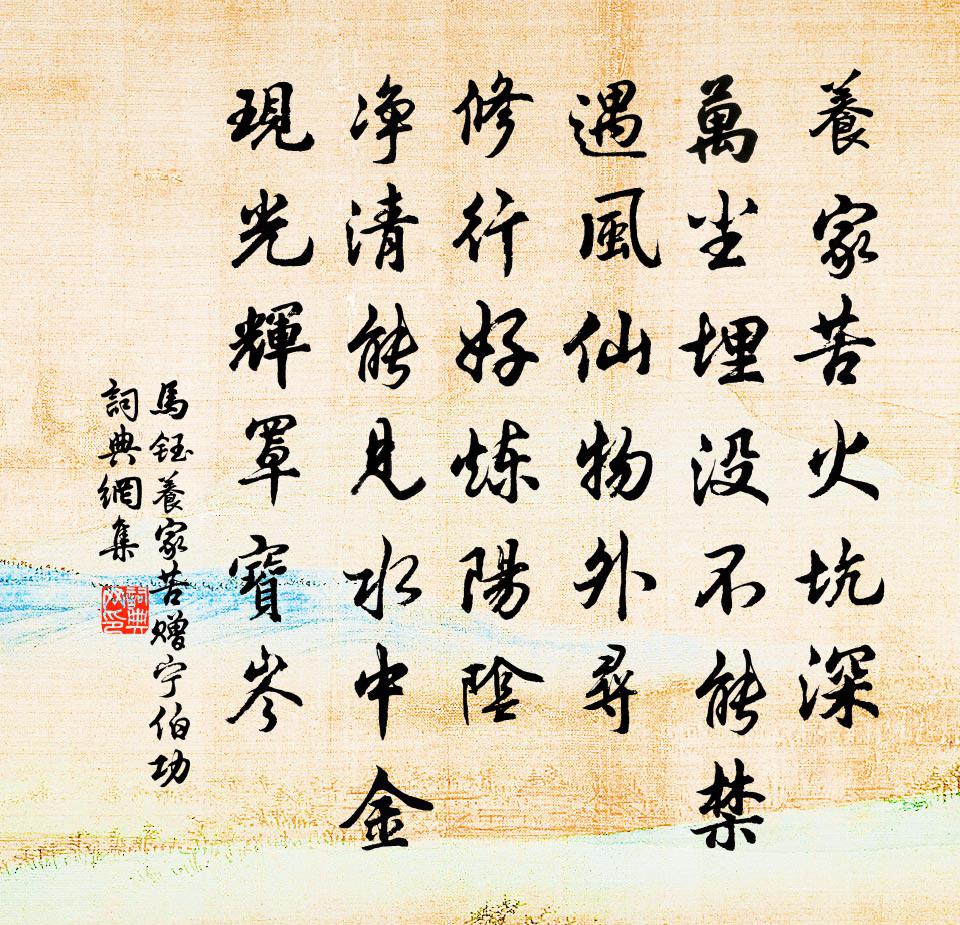 養家苦火坑深
萬尘埋没不能禁
遇風仙物外尋
修行好炼陽陰
净清能見水中金
現光輝罩寶岑
馬鈺養家苦赠宁伯功
詞典網集